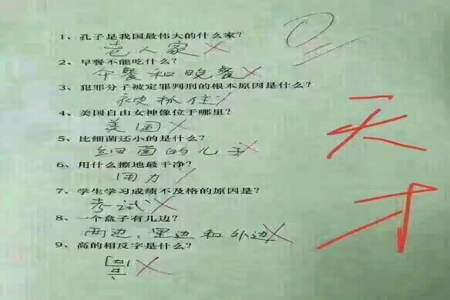 1、孔子是我国最伟大的什么家？
老人家
2、早餐不能吃什么？
午餐和晚餐
3、犯罪分子被定罪判刑的根本原因是什么？
被抓住
4、美国自由女神像位于哪里？
美国
5、比细菌还小的是什么？
细菌的儿子
6、用什么擦地最干净？
用力
7、学生学习成绩不及格的原因是？
考试
8、一个盒子有几边？
两边，里边和外边
9、高的相反字是什么？
天才